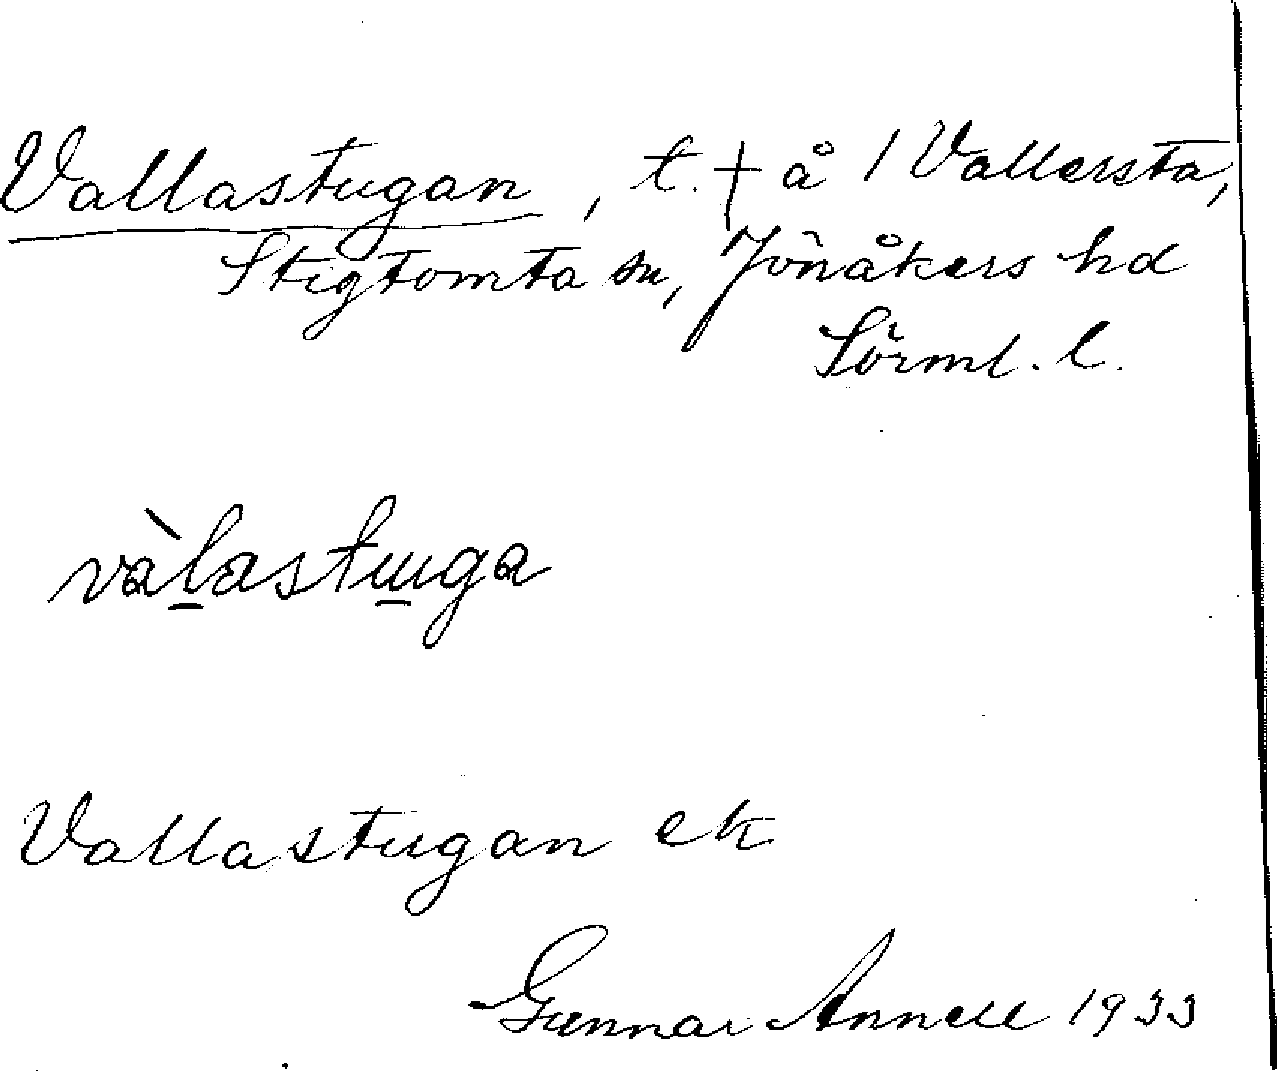 Vallastugan, t. † å 1 Vallersta,
Stigtomta sn, Jönåkers hd
Sörml. l.
vàl̲astu̲ga
Vallastugan ek
Gunnar Annell 1933